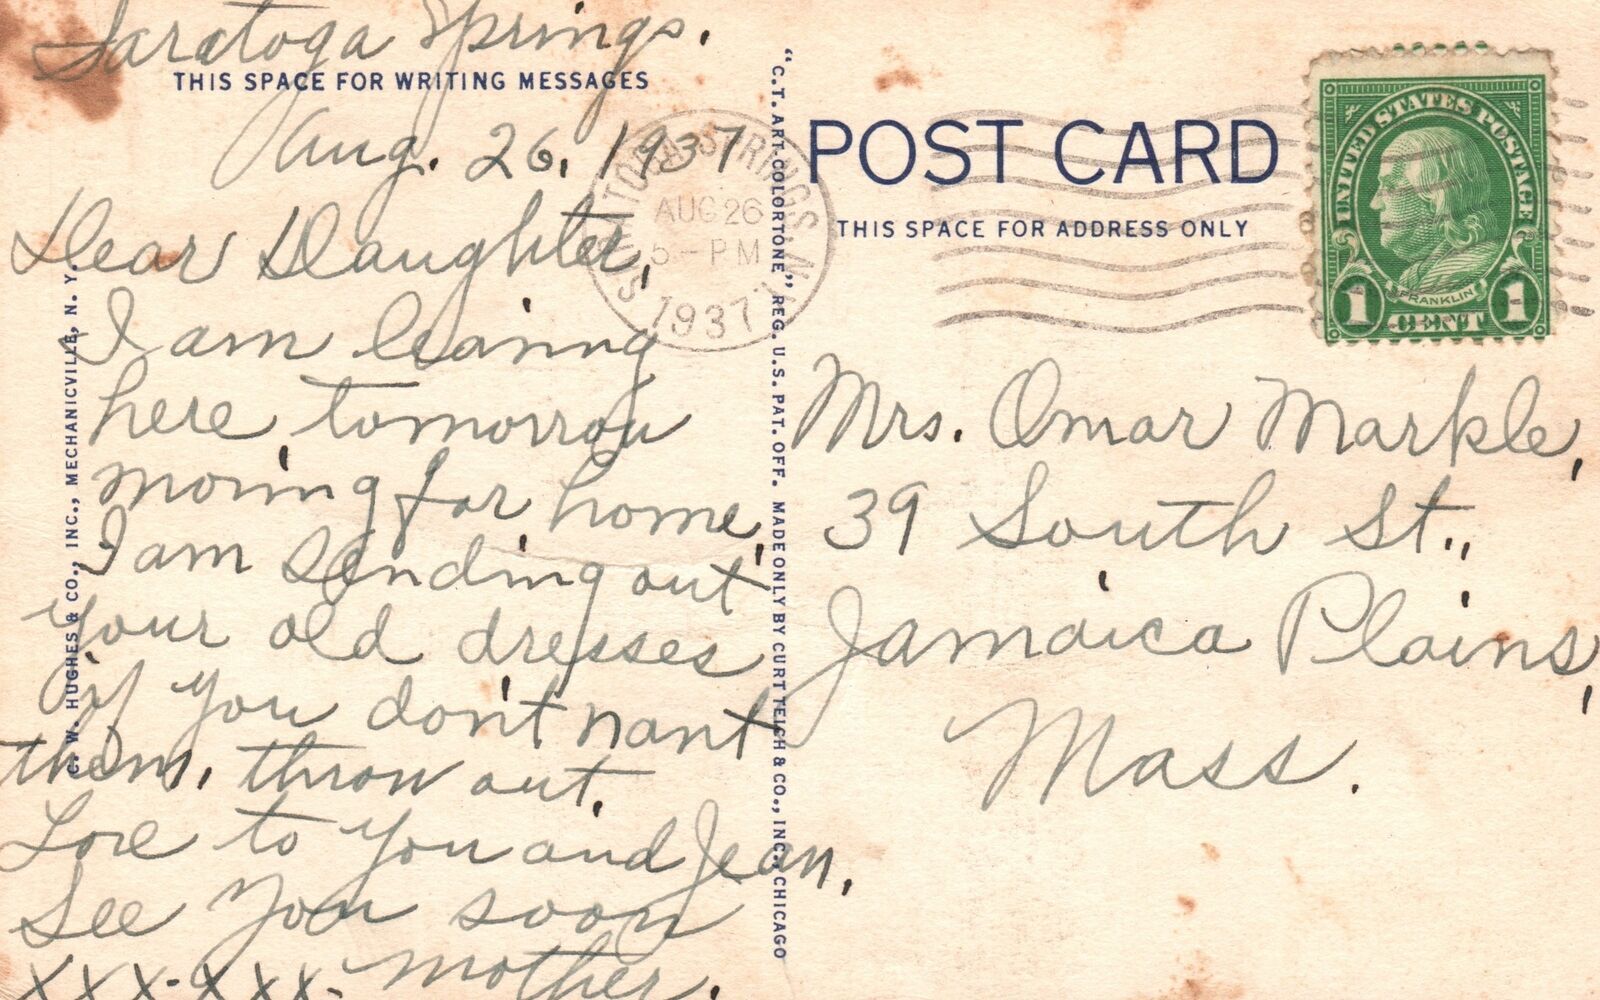 Saratoga Springs.
THIS SPACE FOR WRITING MESSAGES
Aug. 26, 1937
Dear Daughter,
I am leaving
here tomorrow
moving for home,
I am sending out
your old dresses
if you don't want
them, throw out.
Love to you and Jean.
See you soon
XXX-XXX. Mother.
C. W. HUGHES & CO., INC., MECHANICVILLE, N. Y.
"C.T. ART-COLORTONE" REG. U.S. PAT. OFF. MADE ONLY BY CURT TEICH & CO., INC., CHICAGO
SARATOGA SPRINGS N.Y.
AUG 26
5-PM
1937
POST CARD
THIS SPACE FOR ADDRESS ONLY
UNITED STATES POSTAGE
FRANKLIN
1 CENT 1
Mrs. Omar Markle,
39 South St.,
Jamaica Plains,
Mass.